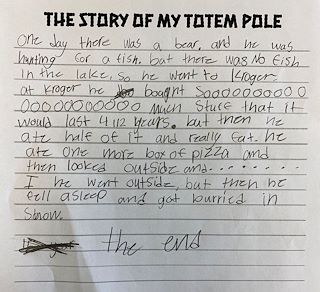 THE STORY OF MY TOTEM POLE
One day there was a bear, and he was
hunting for a fish, but there was no fish
in the lake, so he went to kroger,
at kroger he bought Sooooooooo
oooooooooooo much stuff that it
would last 4 1/2 years. but then he
ate half of it and really fat. he
ate one more box of pizza and
then looked outside and........
I he went outside, but then he
fell asleep and got burried in
Snow.
the end